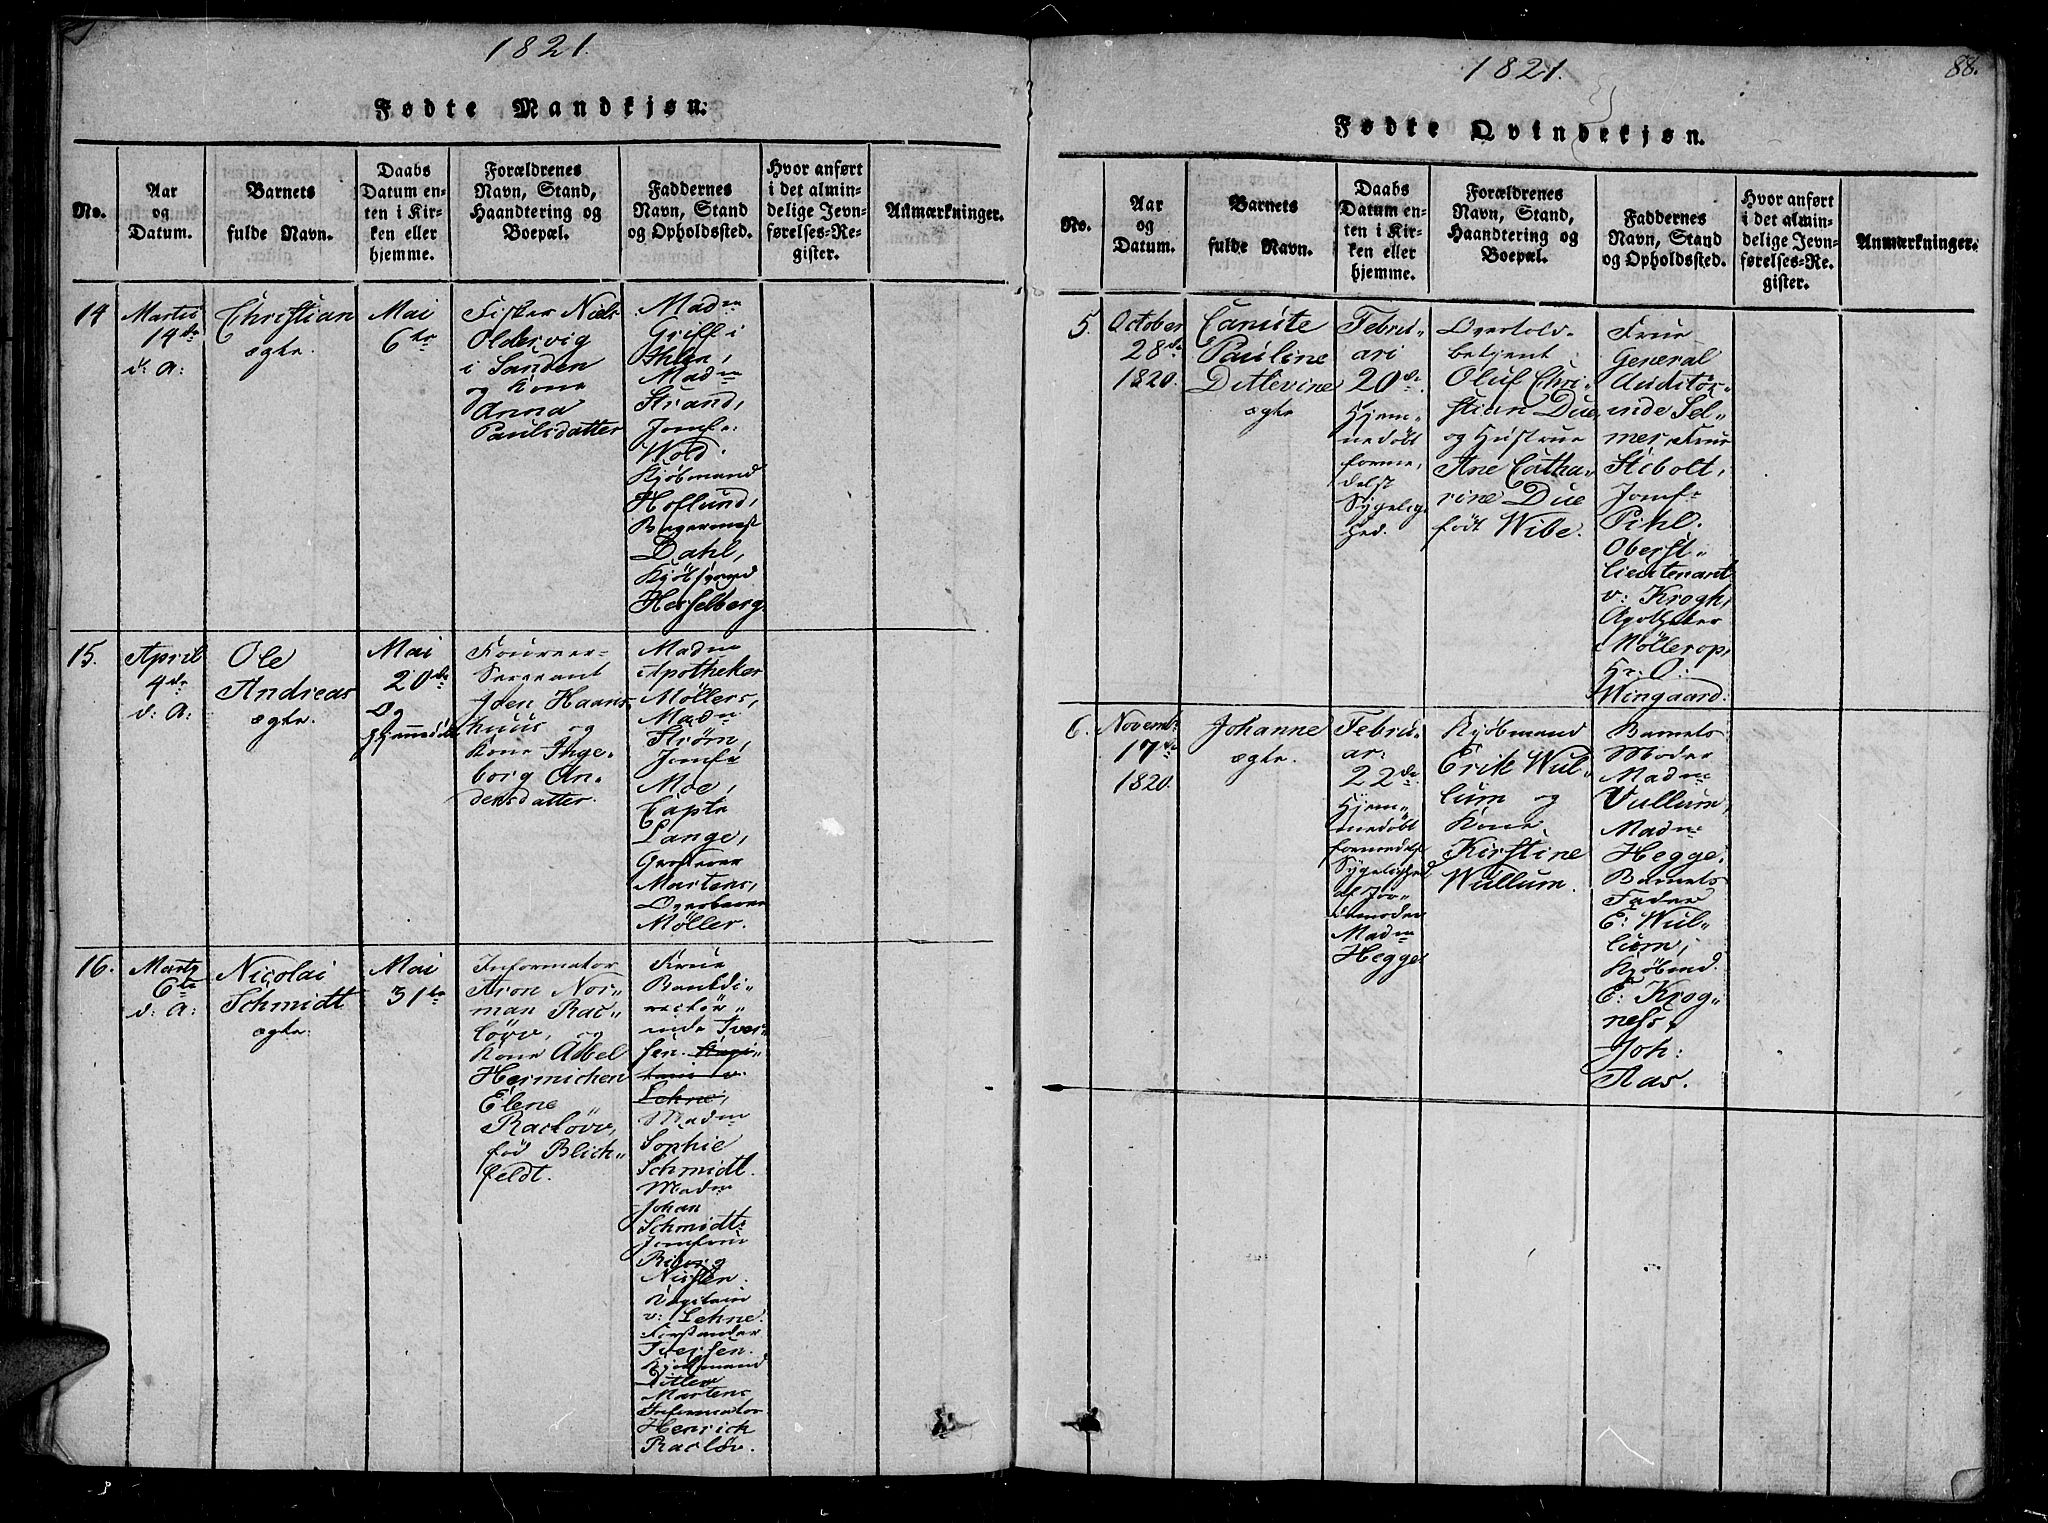 1821.
Fødte Mandkjøn.
No.
Aar
og
Datum.
Barnets
fulde Navn.
Daabs
Datum en-
ten i Kir-
ken eller
hjemme.
Forældrenes
Navn, Stand,
Haandtering og
Boepæl.
Faddernes
Navn, Stand
og Opholdssted.
Hvor anført
i det almin-
delige Jevn-
førelses-Re-
gister.
Anmærkninger.
14
Martii
14de
d: A:
Christian
ægte.
Mai
6te
Fisker Niels
Oldervig
i Sanden
og Kone
Anna
Paulsdatter
Madm
Griff i
Ihlen,
Madm
Strand,
Jomfr:
Wold.
Kjøbmand
Hoflund,
Bagermest
Dahl,
Kjøbmand
Hesselberg.
15.
April
4de
d: A:
Ole
Andreas
ægte.
Mai
20de
og
Hjemmedøbt
Foureer-
Sergeant
Iden Haans
huus og
Kone Inge-
borg An-
dersdatter.
Madm
Apotheker
Møllers,
Madm
Strøm,
Jomfr
Moe,
Captn
Lange,
Martens,
Møller.
16.
Marty
6te
d: A:
Nicolai
Schmidt
ægte.
Mai
31te
Informator
Aron Nor-
man Rac-
løw, og
Kone Abel
Hermichen
Elene
Racløw,
fød Blich-
feldt.
Frue
Bankdi-
recteur-
inde Iver-
sen. Capi-
tain v.
Lehne,
Madm
Sophie
Schmidt.
Madm
Johan
Schmidt.
Jomfrue
Riborg
Nissen.
Capitain
v: Lehne.
Forstander
Iversen.
Kjøbmand
Ditlev
Martens
Informator
Henrich
Racløv.
1821.
88.
Fødte Qvindekjøn.
No.
Aar
og
Datum.
Barnets
fulde Navn.
Daabs
Datum en-
ten i Kir-
ken eller
hjemme.
Forældrenes
Navn, Stand,
Haandtering og
Boepæl.
Faddernes
Navn, Stand
og Opholdssted.
Hvor anført
i det almin-
delige Jevn-
førelses-Re-
gister.
Anmærkninger.
5.
October
28de
1820.
Camite
Pauline
Ditlevine
ægte
Febru-
ari
20de
Hjem-
medøbt
forme-
delst
Sygelig-
hed.
Overtold-
betjent
Oluf Chri-
stian Due,
og Hustrue
Ane Catha-
rine Due
født Wibe.
Frue
General
Auditør-
inde Sel-
mer, Frue
Stibolt,
Jomfr
Pihl.
Oberst-
lieutenant
v: Krogh,
Apotheker
Møllerop,
Hr. O:
Wingaard.
6.
Novembr
17de
1820.
Johanne
ægte.
Febru-
ar:
22de
Hjem-
medøbt
formedelst
Sygelighed
af Jor-
demoder
Madm
Hegge.
Kjøbmand
Erik Wul-
lum og
Kone
Kirstine
Wullum.
Barnets
Moder
Madm
Vullum,
Madm
Hegge.
Barnets
Fader
E: Wul-
lum,
Kjøbmd
E: Krog-
ness,
Joh:
Aas.